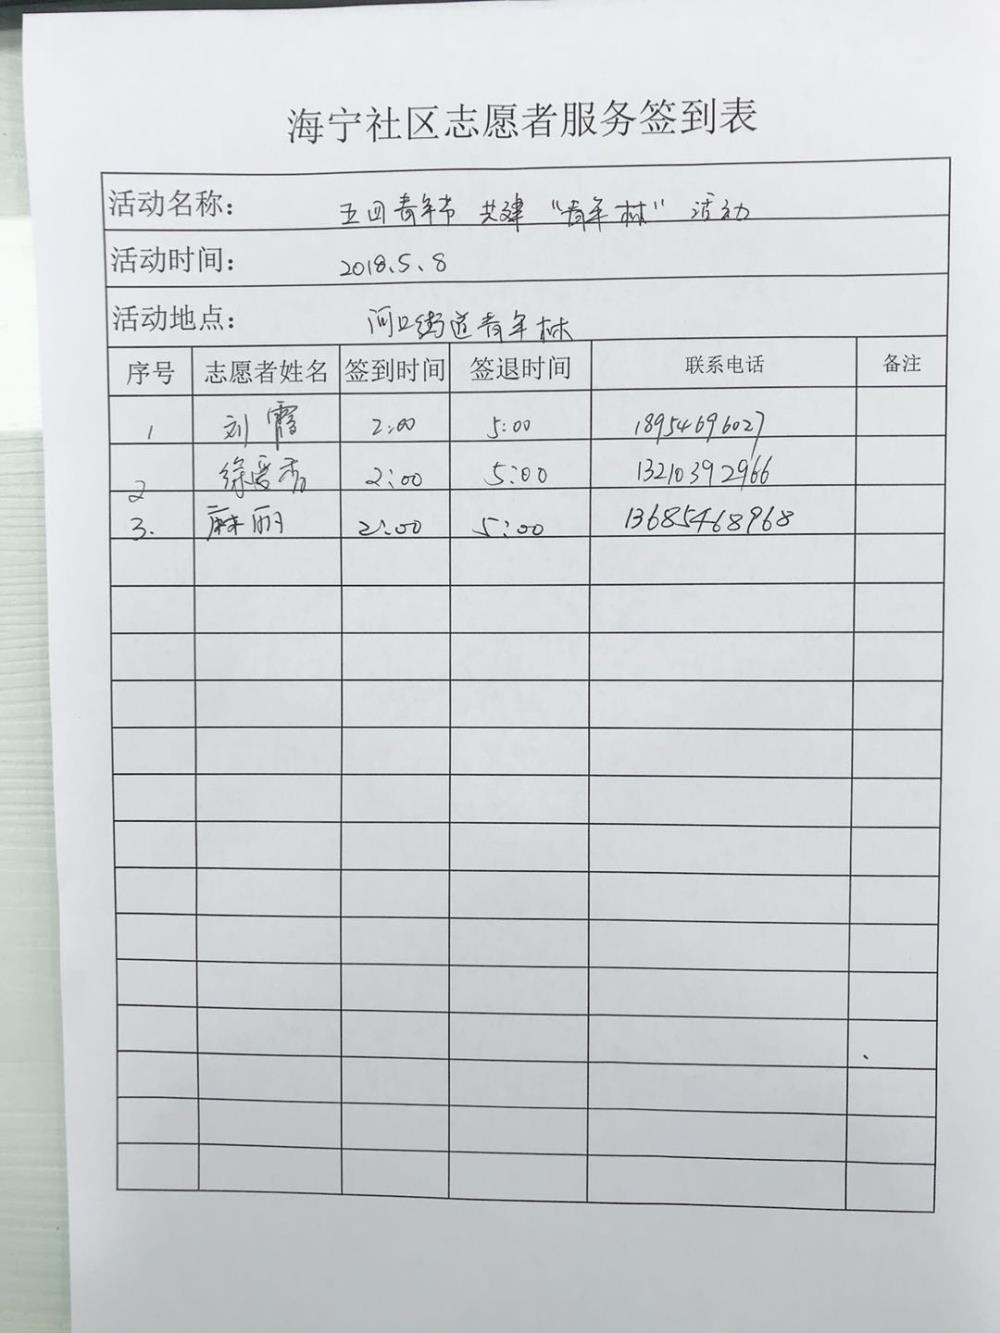 海宁社区志愿者服务签到表
活动名称： 五四青年节 共建“青年林”活动
活动时间： 2018.5.8
活动地点： 河口街道青年林
序号 志愿者姓名 签到时间 签退时间 联系电话 备注
1 刘霞 2:00 5:00 18954696027
2 徐爱秀 2:00 5:00 13210392966
3. 麻丽 2:00 5:00 13685468968